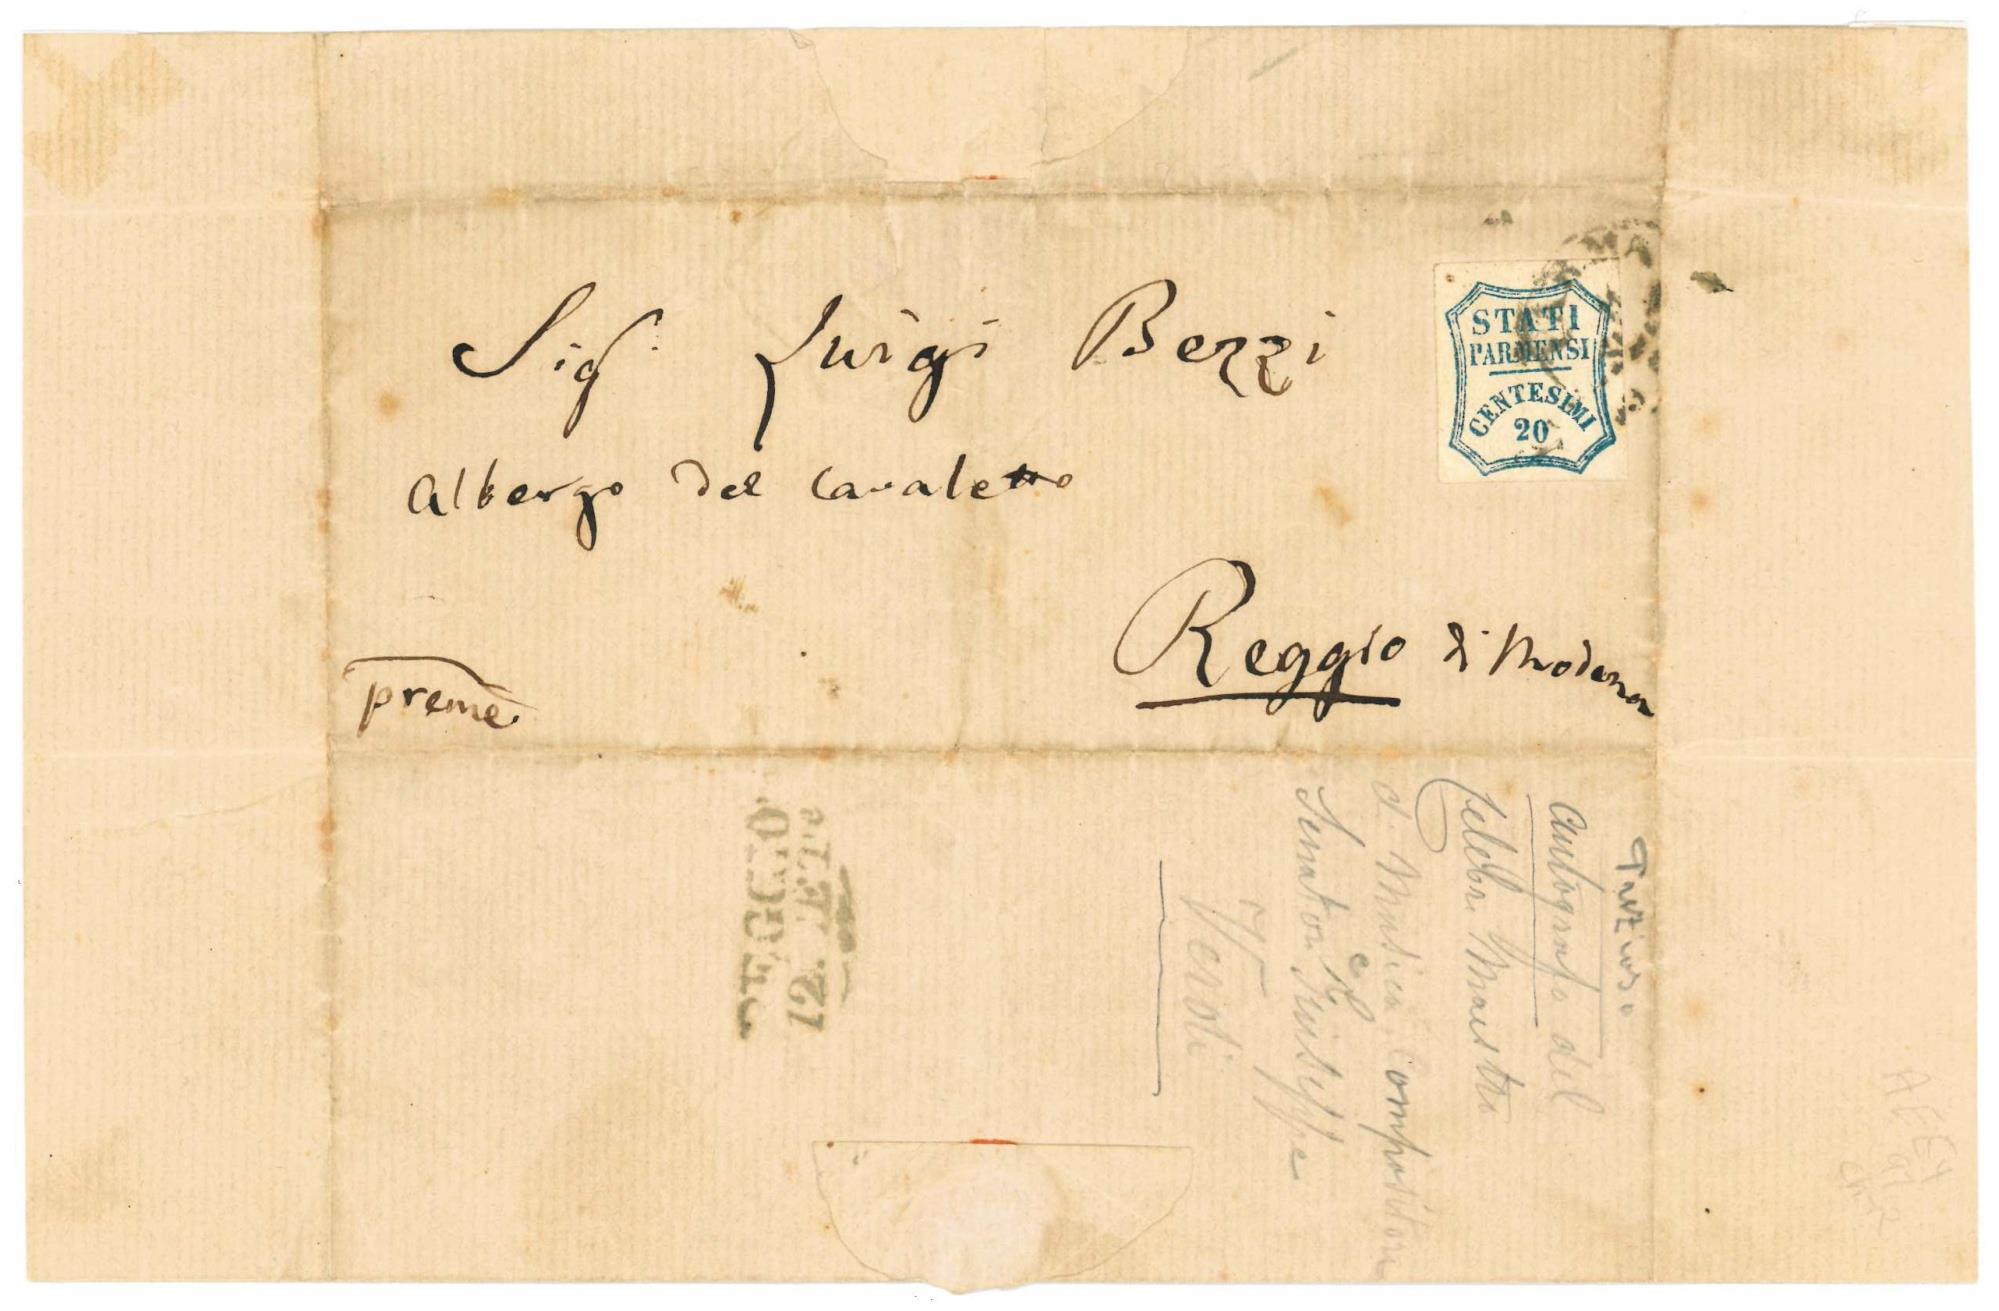 Sig.r Luigi Bezzi
Albergo del Cavaletto
Reggio di Modena
preme.
STATI
PARMENSI
CENTESIMI
20
REGGIO
12.
Autografo del
celebre Maestro
d. Musica Compositore
e
Senatore Giuseppe
Verdi